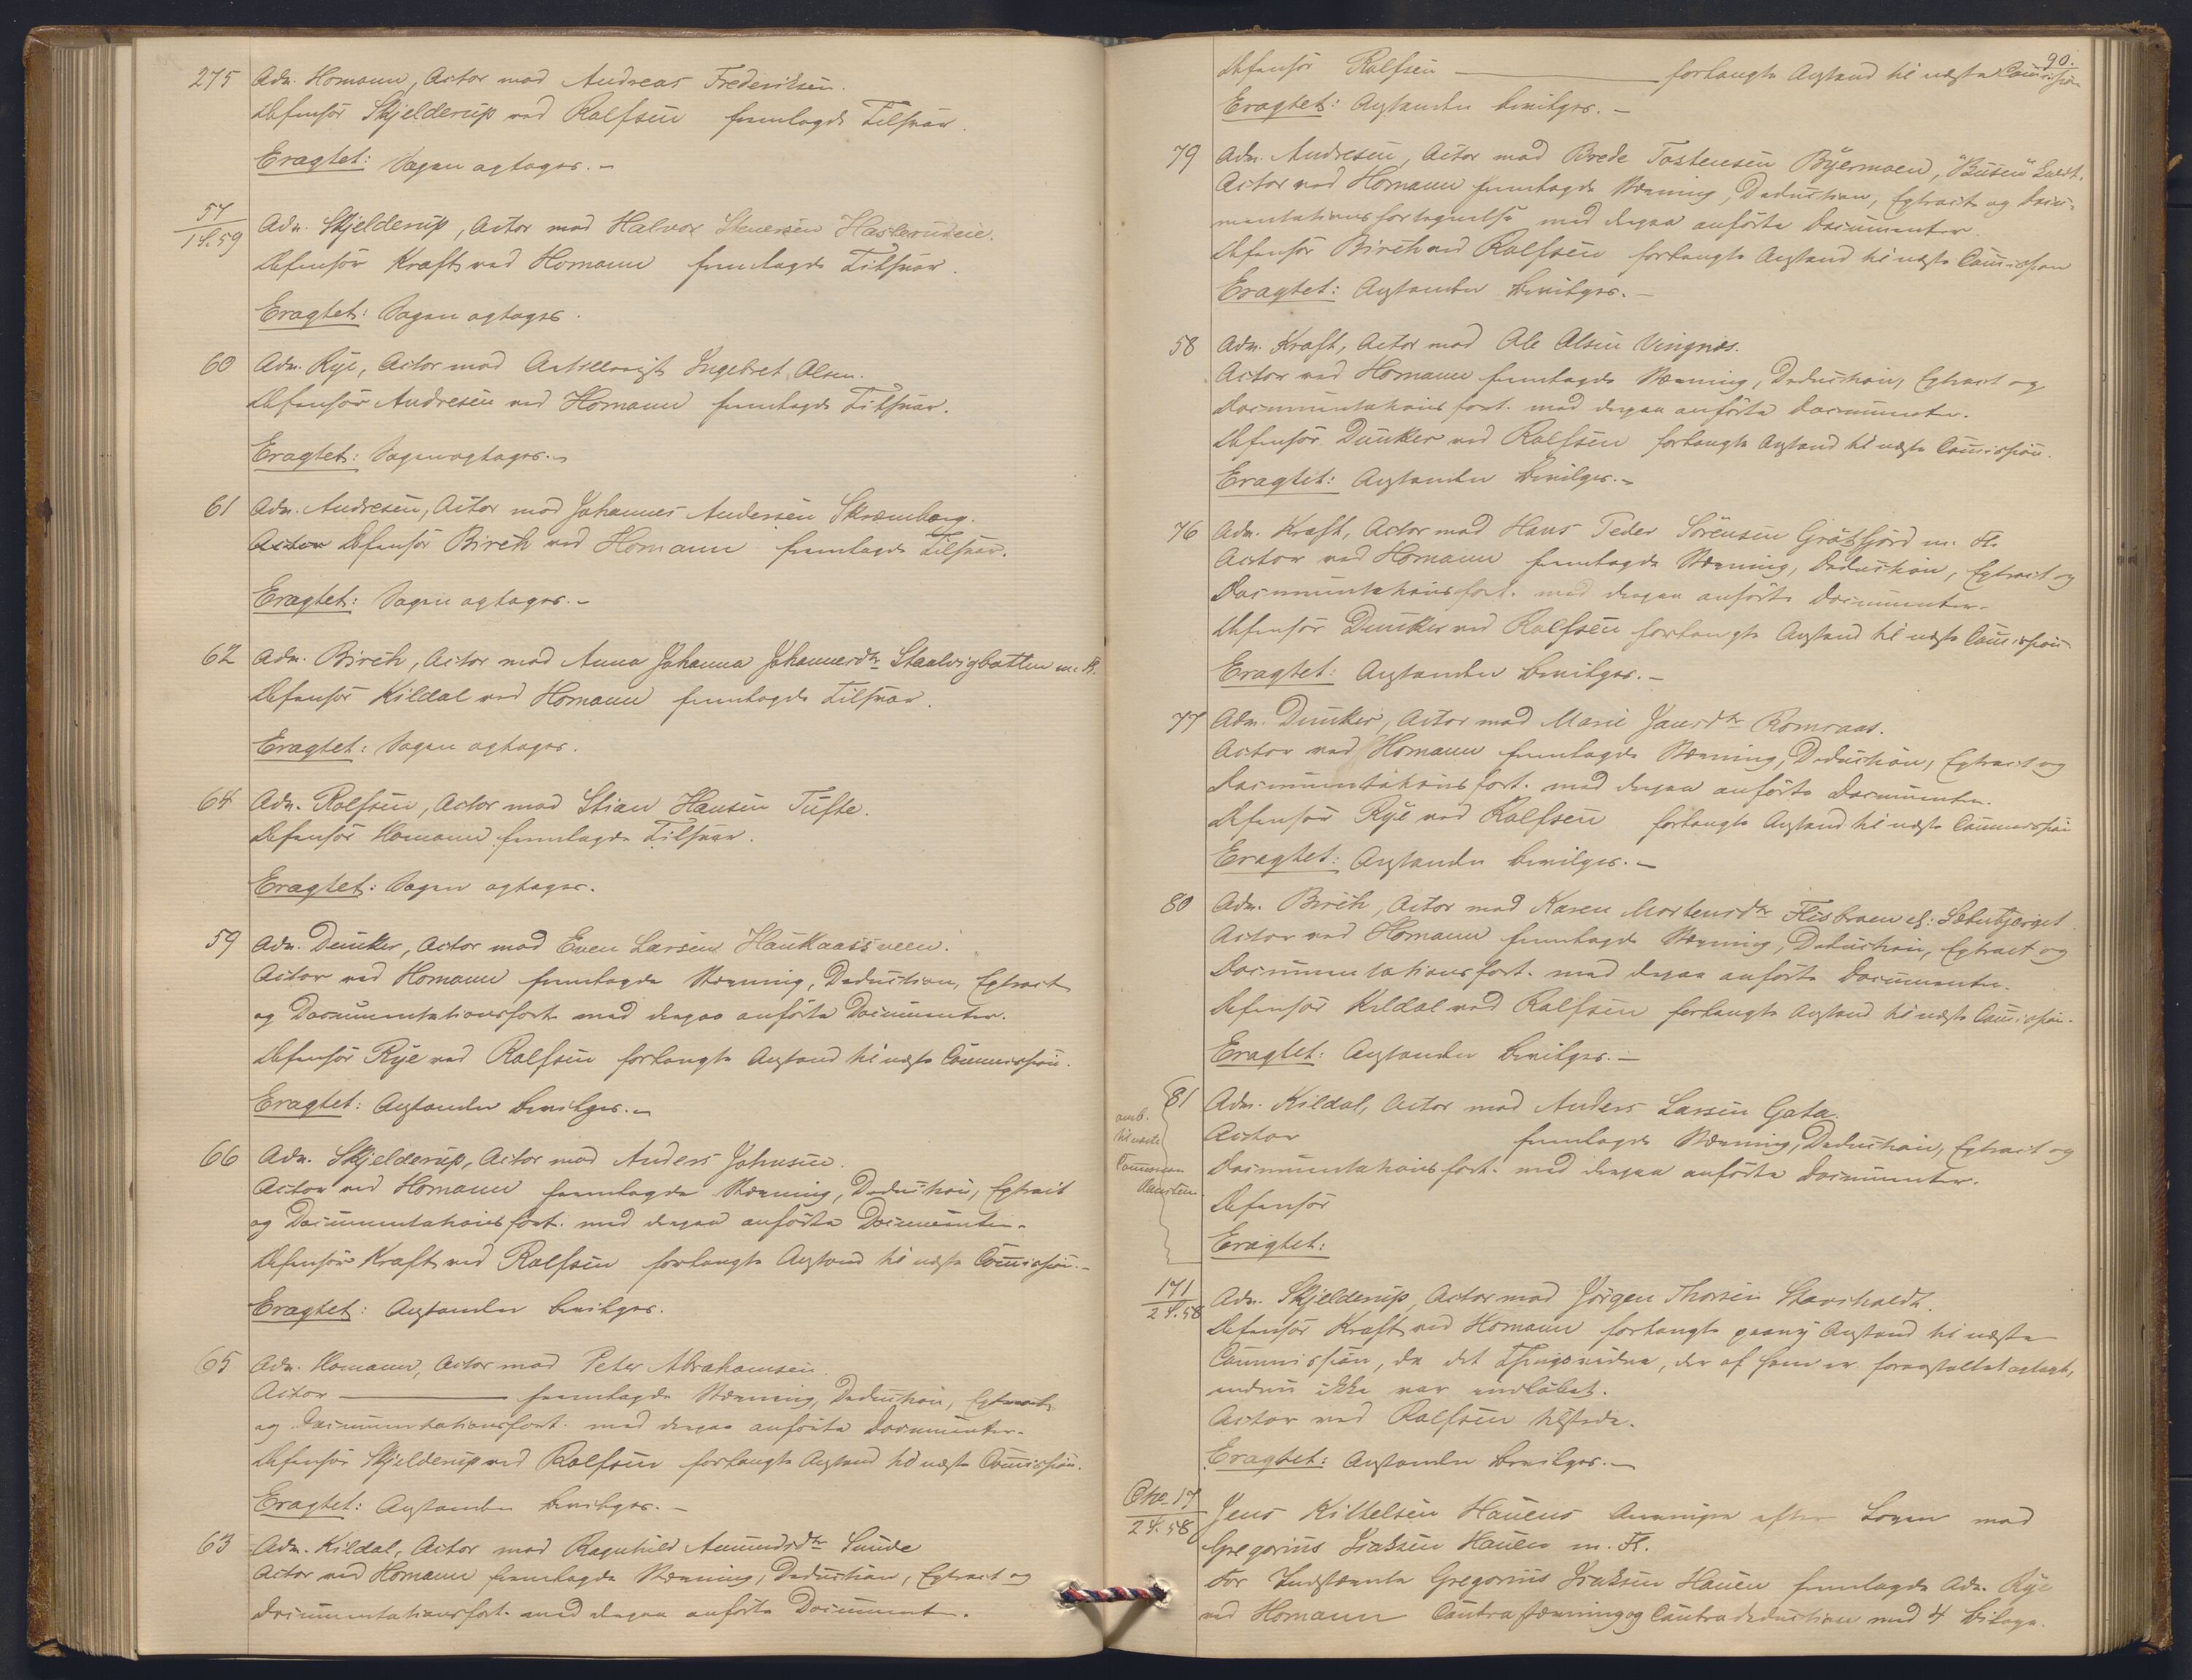 275 Adv. Homann, Actor mod Andreas Frederiksen.
Defensor Skjelderup ved Rolfsen fremlagde Tilsvar.
Eragtet: Sagen optages. –
57/1 S. 59 Adv. Skjelderup, Actor mod Halvor Stenersen Haslerudeie.
Defensor Kraft ved Homann fremlagde Tilsvar.
Eragtet: Sagen optages.
60 Adv. Rye, Actor mod Ingebret Olsen.
Defensor Andresen ved Homann fremlagde Tilsvar.
Eragtet: Sagen optages. –
61 Adv. Andresen, Actor mod Johannes Andersen Skramborg.
Actor Defensor Birch ved Homann fremlagde Tilsvar.
Eragtet: Sagen optages. –
62 Adv. Birch, Actor mod Anna Johanna Johannesdtr Staalvigbotten m. Fl.
Defensor Kildal ved Homann fremlagde Tilsvar.
Eragtet: Sagen optages.
64 Adv. Rolfsen, Actor mod Stian Hansen Tufte.
Defensor Homann fremlagde Tilsvar.
Eragtet: Sagen optages.
59 Adv. Dunker, Actor mod Even Larsen Haukaassveen.
Actor ved Homann fremlagde Stævning, Deduction, Extract
og Documentationsfort. med derpaa anførte Documenter.
Defensor Rye ved Rolfsen forlangte Anstand til næste Commission.
Eragtet: Anstanden bevilges. –
66 Adv. Skjelderup, Actor mod Anders Johnsen.
Actor ved Homann fremlagde Stævning, Deduction, Extract
og Documentationsfort. med derpaa anførte Documenter.
Defensor Kraft ved Rolfsen forlangte Anstand til næste Comission. –
Eragtet: Anstanden bevilges.
65 Adv. Homann, Actor mod Peter Abrahamsen.
Actor ——— fremlagde Stævning, Deduction, Extract
og Documentationsfort. med derpaa anførte Documenter.
Defensor Skjelderup ved Rolfsen forlangte Anstand til næste Comission.
Eragtet: Anstanden bevilges. –
63 Adv. Kildal, Actor mod Ragnhild Amundsdtr Sunde
Actor ved Homann fremlagde Stævning, Deduction, Extract og
Documentationsfort. med derpaa anførte Documenter.
90.
Defensor Rolfsen ——— forlangte Anstand til næste Comission
Eragtet: Anstanden bevilges. –
79 Adv. Andresen, Actor mod Brede Tostensen Byermoen, "Busen" kaldt.
Actor ved Homann fremlagde Stævning, Deduction, Extract og Docu-
mentationsfortegnelse med derpaa anførte Documenter.
Defensor Birch ved Rolfsen forlangte Anstand til næste Comission
Eragtet: Anstanden bevilges. –
58 Adv. Kraft, Actor mod Ole Olsen Vingnæs.
Actor ved Homann fremlagde Stævning, Deduction, Extract og
Documentationsfort. med derpaa anførte Documenter.
Defensor Dunker ved Rolfsen forlangte Anstand til næste Comission.
Eragtet: Anstanden bevilges. –
76 Adv. Kraft, Actor mod Hans Peder Sørensen Grøtfjord m. Fl.
Actor ved Homann fremlagde Stævning, Deduction, Extract og
Documentationsfort. med derpaa anførte Documenter.
Defensor Dunker ved Rolfsen forlangte Anstand til næste Comission
Eragtet: Anstanden bevilges. –
77 Adv. Dunker, Actor mod Marie Jansdtr Romsaas.
Actor ved Homann fremlagde Stævning, Deduction, Extract og
Documentationsfort. med derpaa anførte Documenter.
Defensor Rye ved Rolfsen forlangte Anstand til næste Commission
Eragtet: Anstanden bevilges. –
80 Adv. Birch, Actor mod Karen Mortensdtr Flisbraen el:
Actor ved Homann fremlagde Stævning, Deduction, Extract og
Documentationsfort. med derpaa anførte Documenter.
Defensor Kildal ved Rolfsen forlangte Anstand til næste Comission.
Eragtet: Anstanden bevilges. –
81 Adv. Kildal, Actor mod Anders Larsen Gata.
Actor fremlagde Stævning, Deduction, Extract og
Documentationsfort. med derpaa anførte Documenter.
Defensor
Eragtet:
til næste
171/2 S. 58 Adv. Skjelderup, Actor mod Jörgen Thorsen Stavsholdt.
Defensor Kraft ved Homann forlangte paany Anstand til næste
Commission, da det Thingsvidne, der af ham er foranstaltet optaget,
endnu ikke var indløbet.
Actor ved Rolfsen tilstede.
Eragtet: Anstanden bevilges. –
17/2 S. 58 Jens Kittelsen Hauens Arvinger efter Loven mod
Gregorius Isaksen Hauen m. Fl.
For Indstævnte Gregorius Isaksen Hauen fremlagde Adv. Rye
ved Homann Contrastævning og Contradeduction med 4 Bilage.